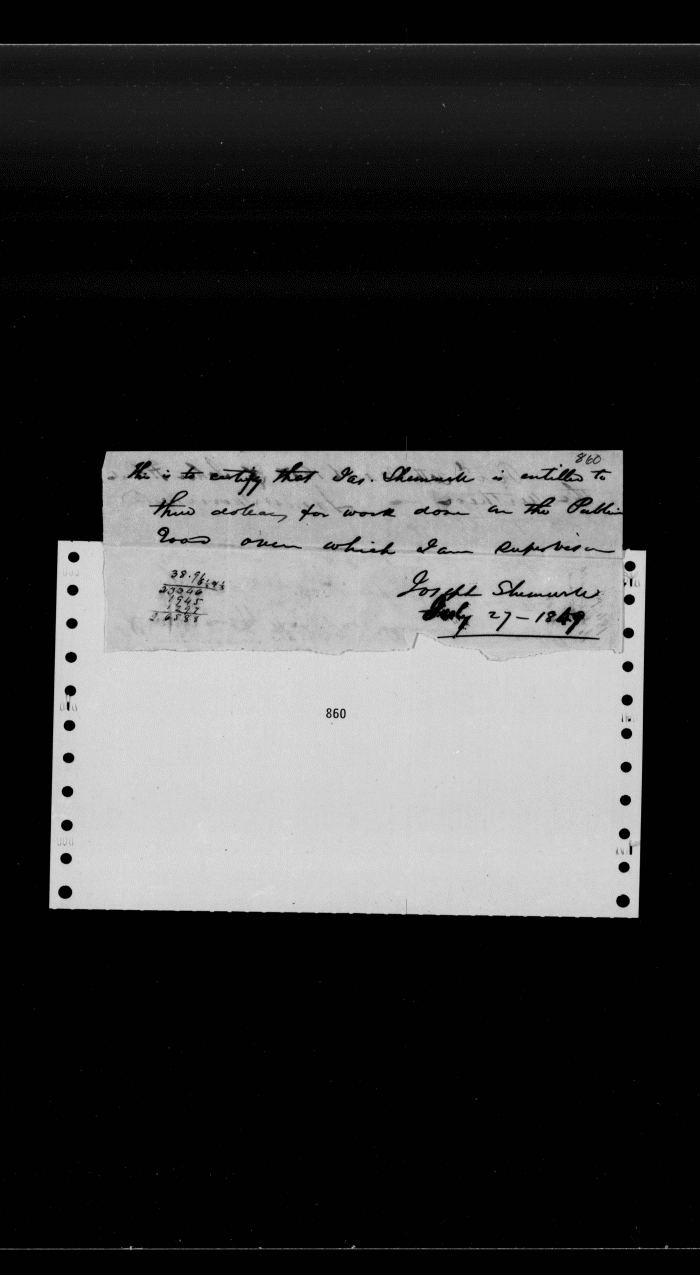 860
this is to certify that Jas. Shewark is entitled to
three dollars for work done on the Public
Road over which I am supervisor
Joseph Shewark
July 27 - 1849
38.96
1945
860